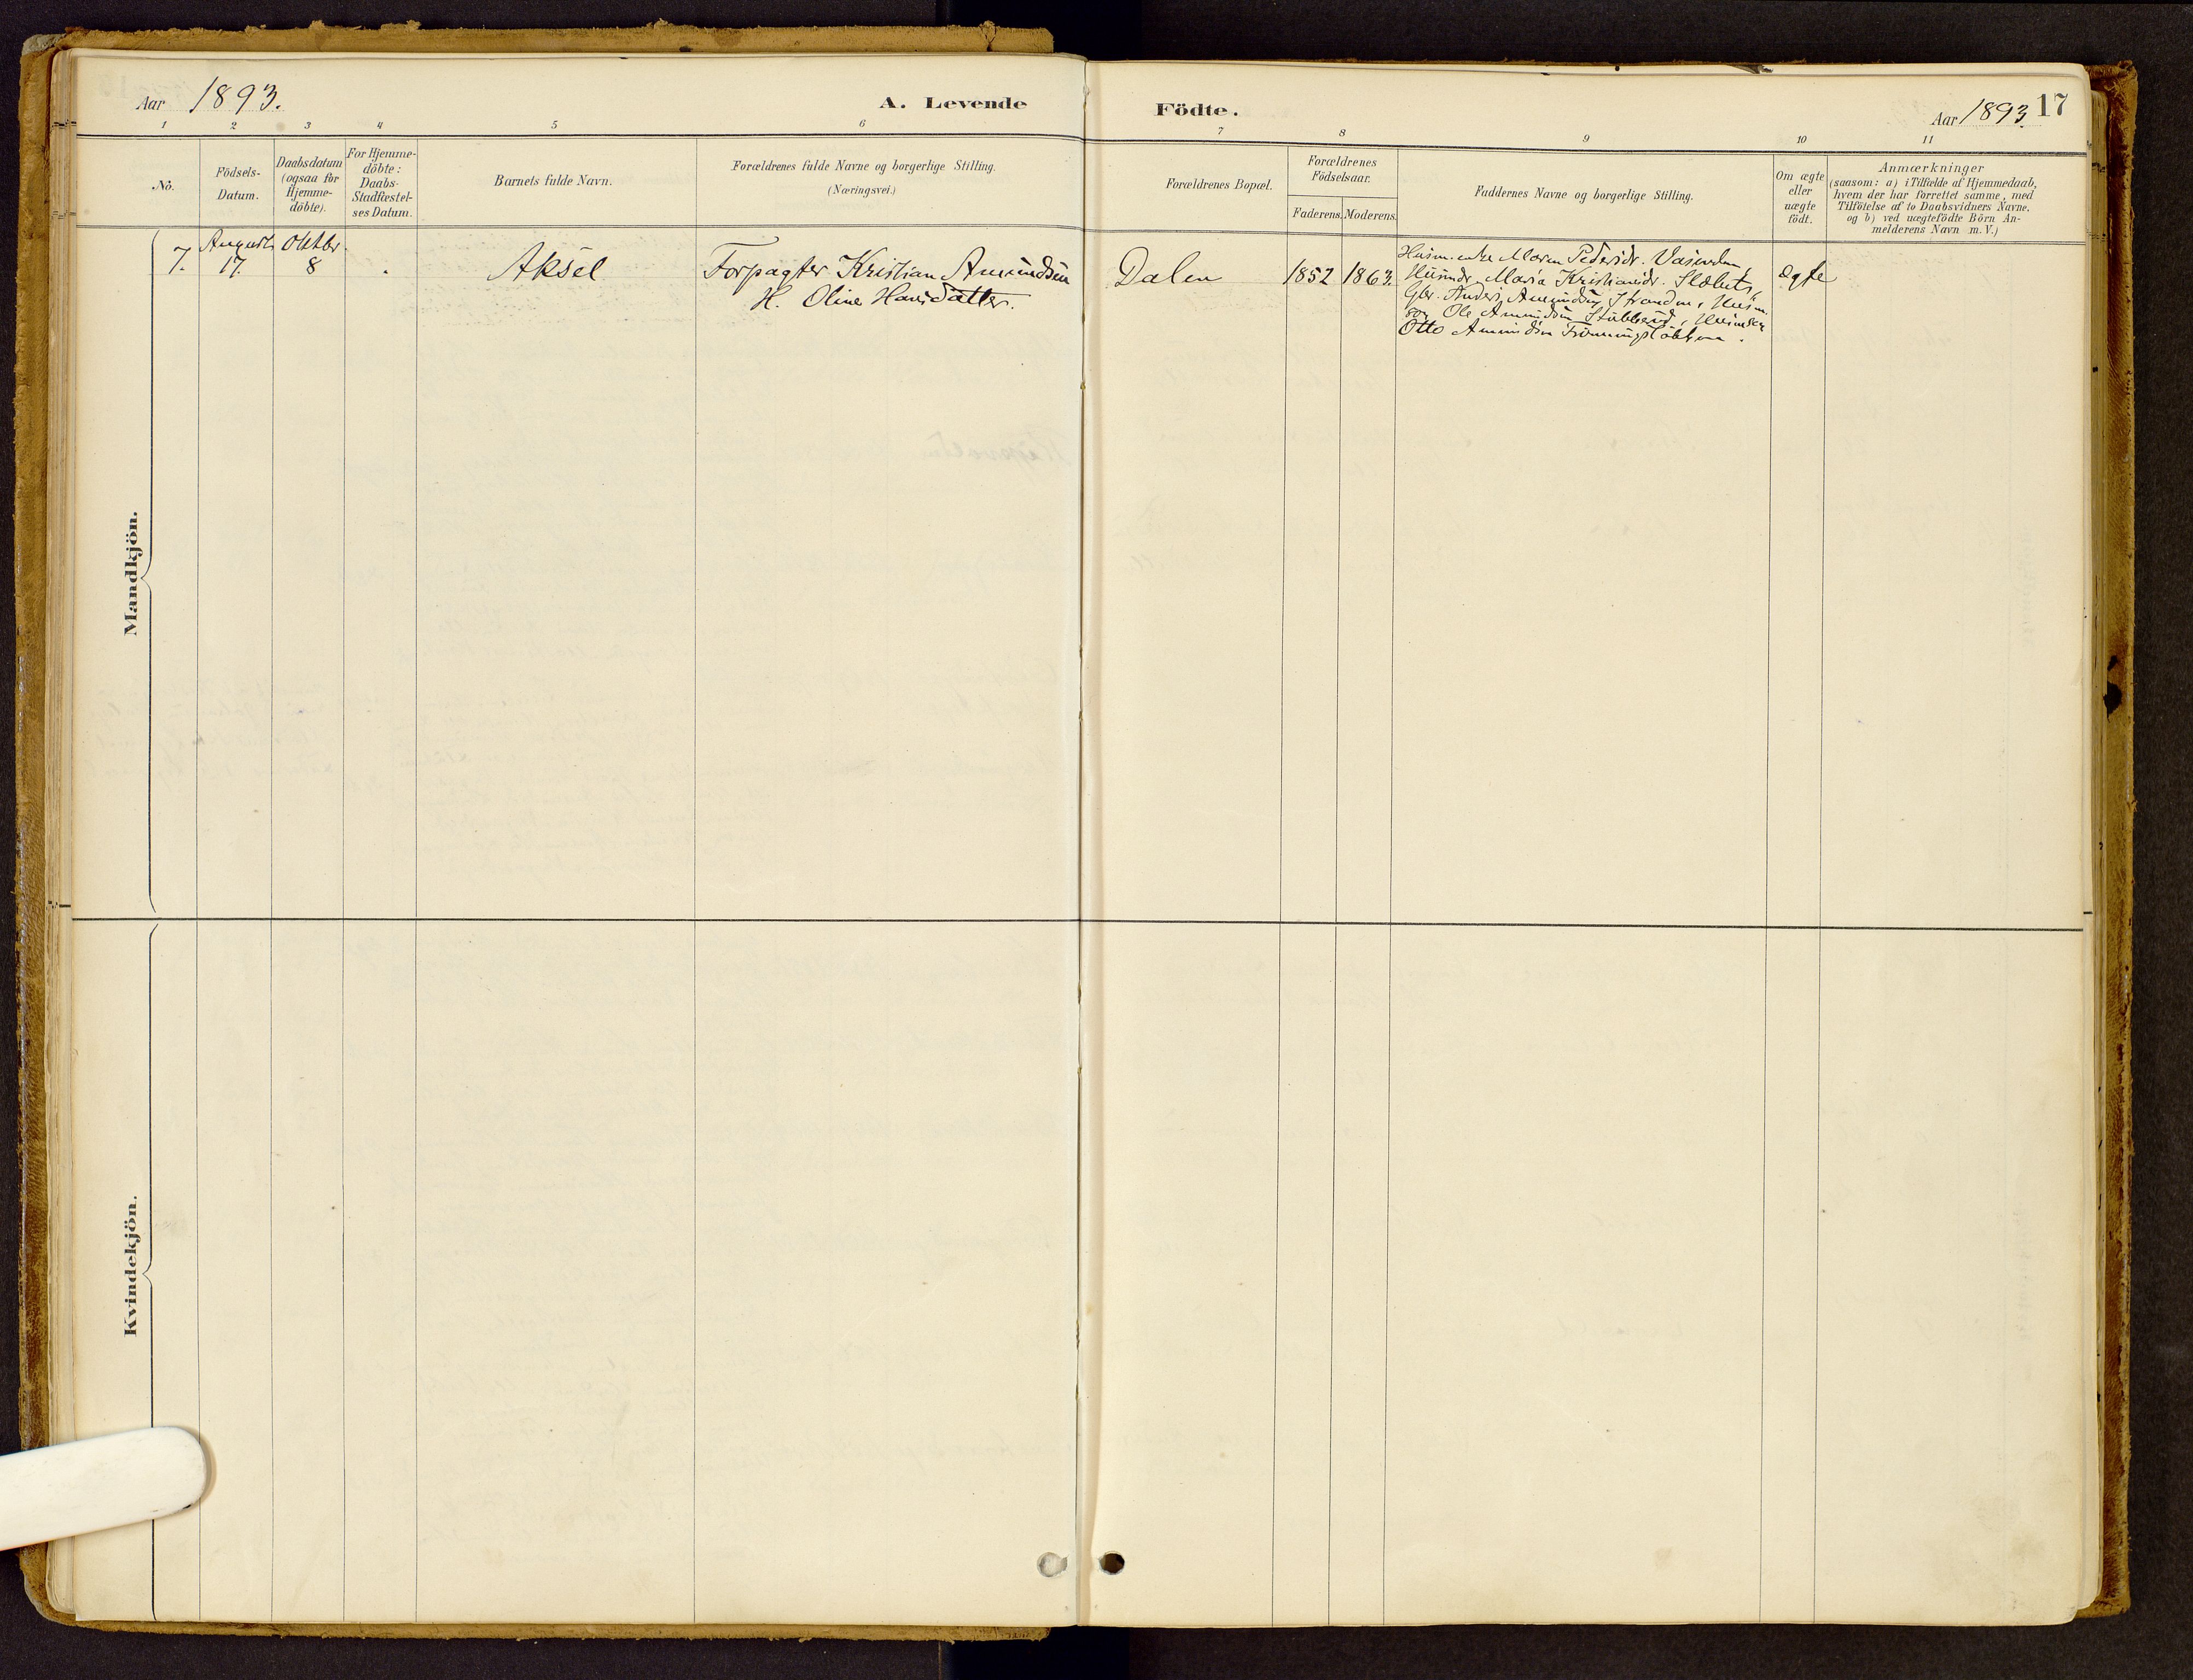 Aar 1893. A. Levende Födte. Aar 1893. 17
1 2 3 4 5 6 7 8 9 10 11
No.
Födsels-
Datum.
Daabsdatum
(ogsaa for
Hjemme-
döbte).
For Hjemme-
döbte:
Daabs-
Stadfæstel-
ses Datum.
Barnets fulde Navn.
Forældrenes fulde Navne og borgerlige Stilling.
(Næringsvei.)
Forældrenes Bopæl.
Forældrenes
Födselsaar.
Faderens. Moderens.
Faddernes Navne og borgerlige Stilling.
Om ægte
eller
uægte
födt.
Anmærkninger
(saasom: a) i Tilfælde af Hjemmedaab,
hvem der har forrettet samme, med
Tilföielse af to Daabsvidners Navne.
og b) ved uægtefödte Börn An-
melderens Navn m. V.)
Mandkjön.
7.
August
17.
Oktbr.
8
.
Aksel
Forpagter Kristian Amundsen
H. Oline Hansdatter.
Dalen
1852 1863.
Husm. enke Maren Pedersdr.
Maria Kristiansdr.
Gbr. Anders Amundsen Stranden, Husm.
søn Ole Amundsen Stubberud,
Otto Amundsen
ægte
Kvindekjön.